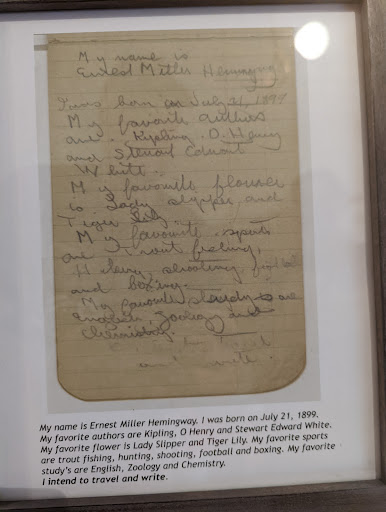 My name is
Ernest Miller Hemingway
I was born on July 21, 1899
My favorite authors
are Kipling, O. Henry
and Steuart Edward
White.
My favourite flower
is Lady slipper and
Tiger Lily.
My favourite sports
are Trout fishing,
shooting, football
and boxing.
My favourite are
English, Zoology and
Chemistry.
and write.
My name is Ernest Miller Hemingway. I was born on July 21, 1899.
My favorite authors are Kipling, O Henry and Stewart Edward White.
My favorite flower is Lady Slipper and Tiger Lily. My favorite sports
are trout fishing, hunting, shooting, football and boxing. My favorite
study's are English, Zoology and Chemistry.
I intend to travel and write.